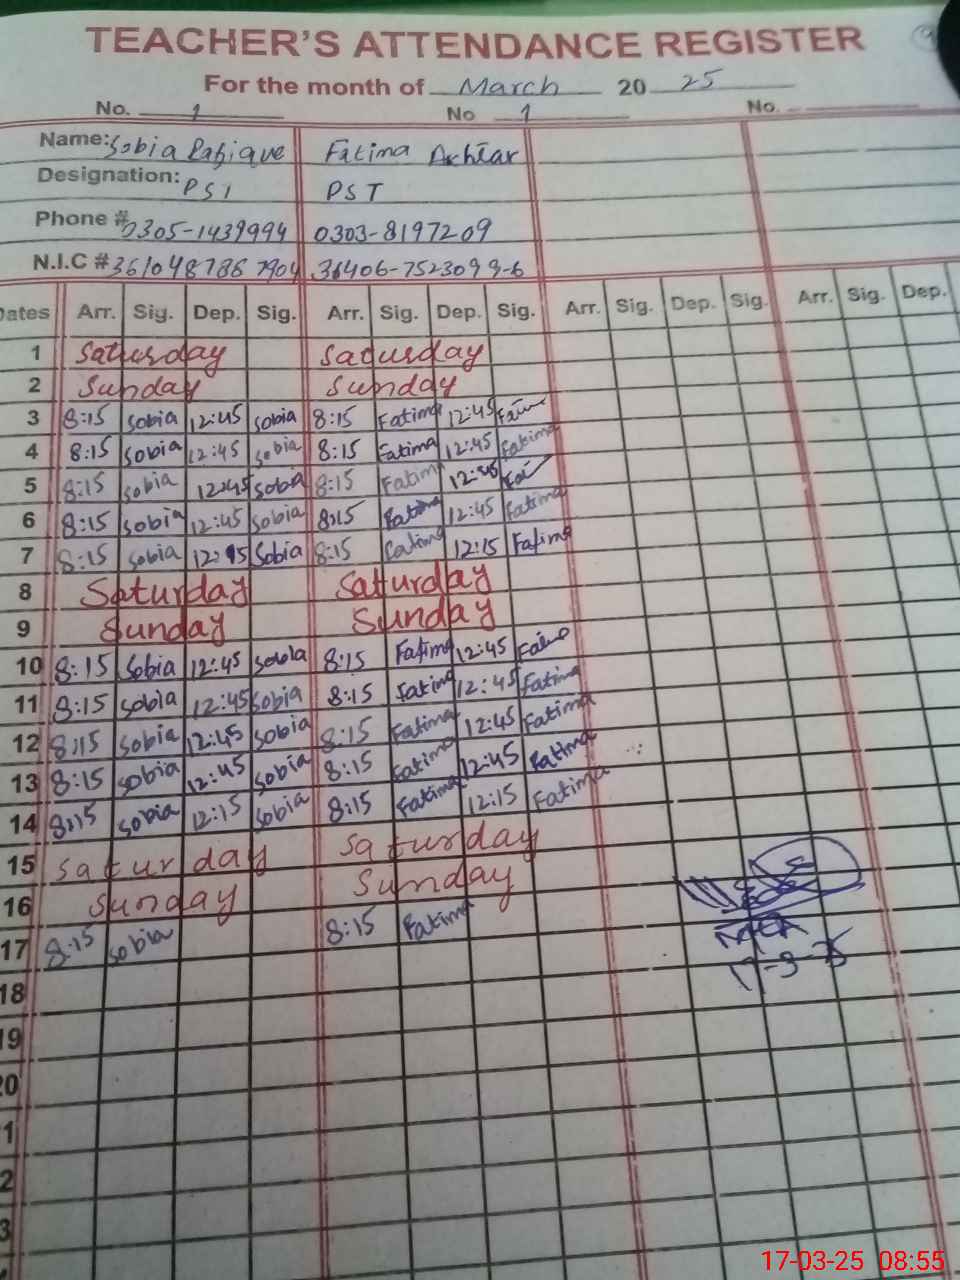 TEACHER'S ATTENDANCE REGISTER
For the month of March 20 25
No. 1 No 1 No.
Name: Sobia Rafique Fatima Akhtar
Designation: PST PST
Phone # 0305-1439994 0303-8197209
N.I.C # 361048786 7904 36406-7523099-6
Dates Arr. Sig. Dep. Sig. Arr. Sig. Dep. Sig. Arr. Sig. Dep. Sig. Arr. Sig. Dep.
1 Saturday Saturday
2 Sunday Sunday
3 8:15 Sobia 12:45 Sobia 8:15 Fatima 12:45 Fatima
4 8:15 Sobia 12:45 Sobia 8:15 Fatima 12:45 Fatima
5 8:15 Sobia 12:45 Sobia 8:15 Fatima 12:45
6 8:15 Sobia 12:45 Sobia 8:15 Fatima 12:45 Fatima
7 8:15 Sobia 12:15 Sobia 8:15 Fatima 12:15 Fatima
8 Saturday Saturday
9 Sunday Sunday
10 8:15 Sobia 12:45 Sobia 8:15 Fatima 12:45 Fatima
11 8:15 Sobia 12:45 Sobia 8:15 Fatima 12:45 Fatima
12 8:15 Sobia 12:45 Sobia 8:15 Fatima 12:45 Fatima
13 8:15 Sobia 12:45 Sobia 8:15 Fatima 12:45 Fatima
14 8:15 Sobia 12:15 Sobia 8:15 Fatima 12:15 Fatima
15 Saturday Saturday
16 Sunday Sunday
17 8:15 Sobia 8:15 Fatima
MEA
17-3-25
18
19
20
1
2
3
17-03-25 08:55